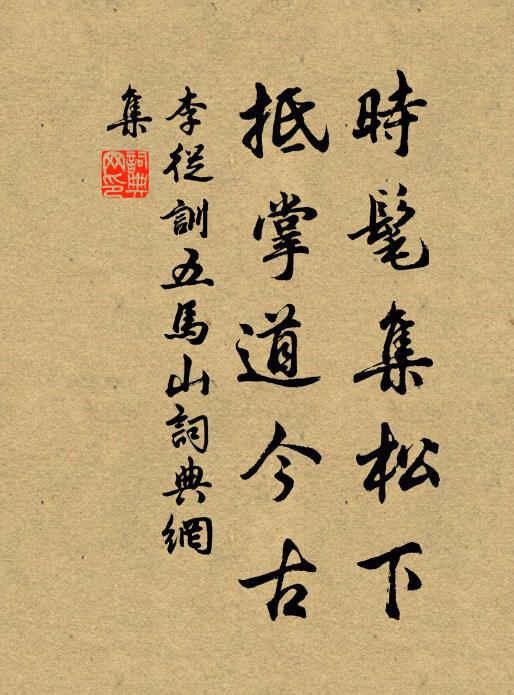 時髦集松下
抵掌道今古
李從訓五馬山詞典網
集
詞典
网印